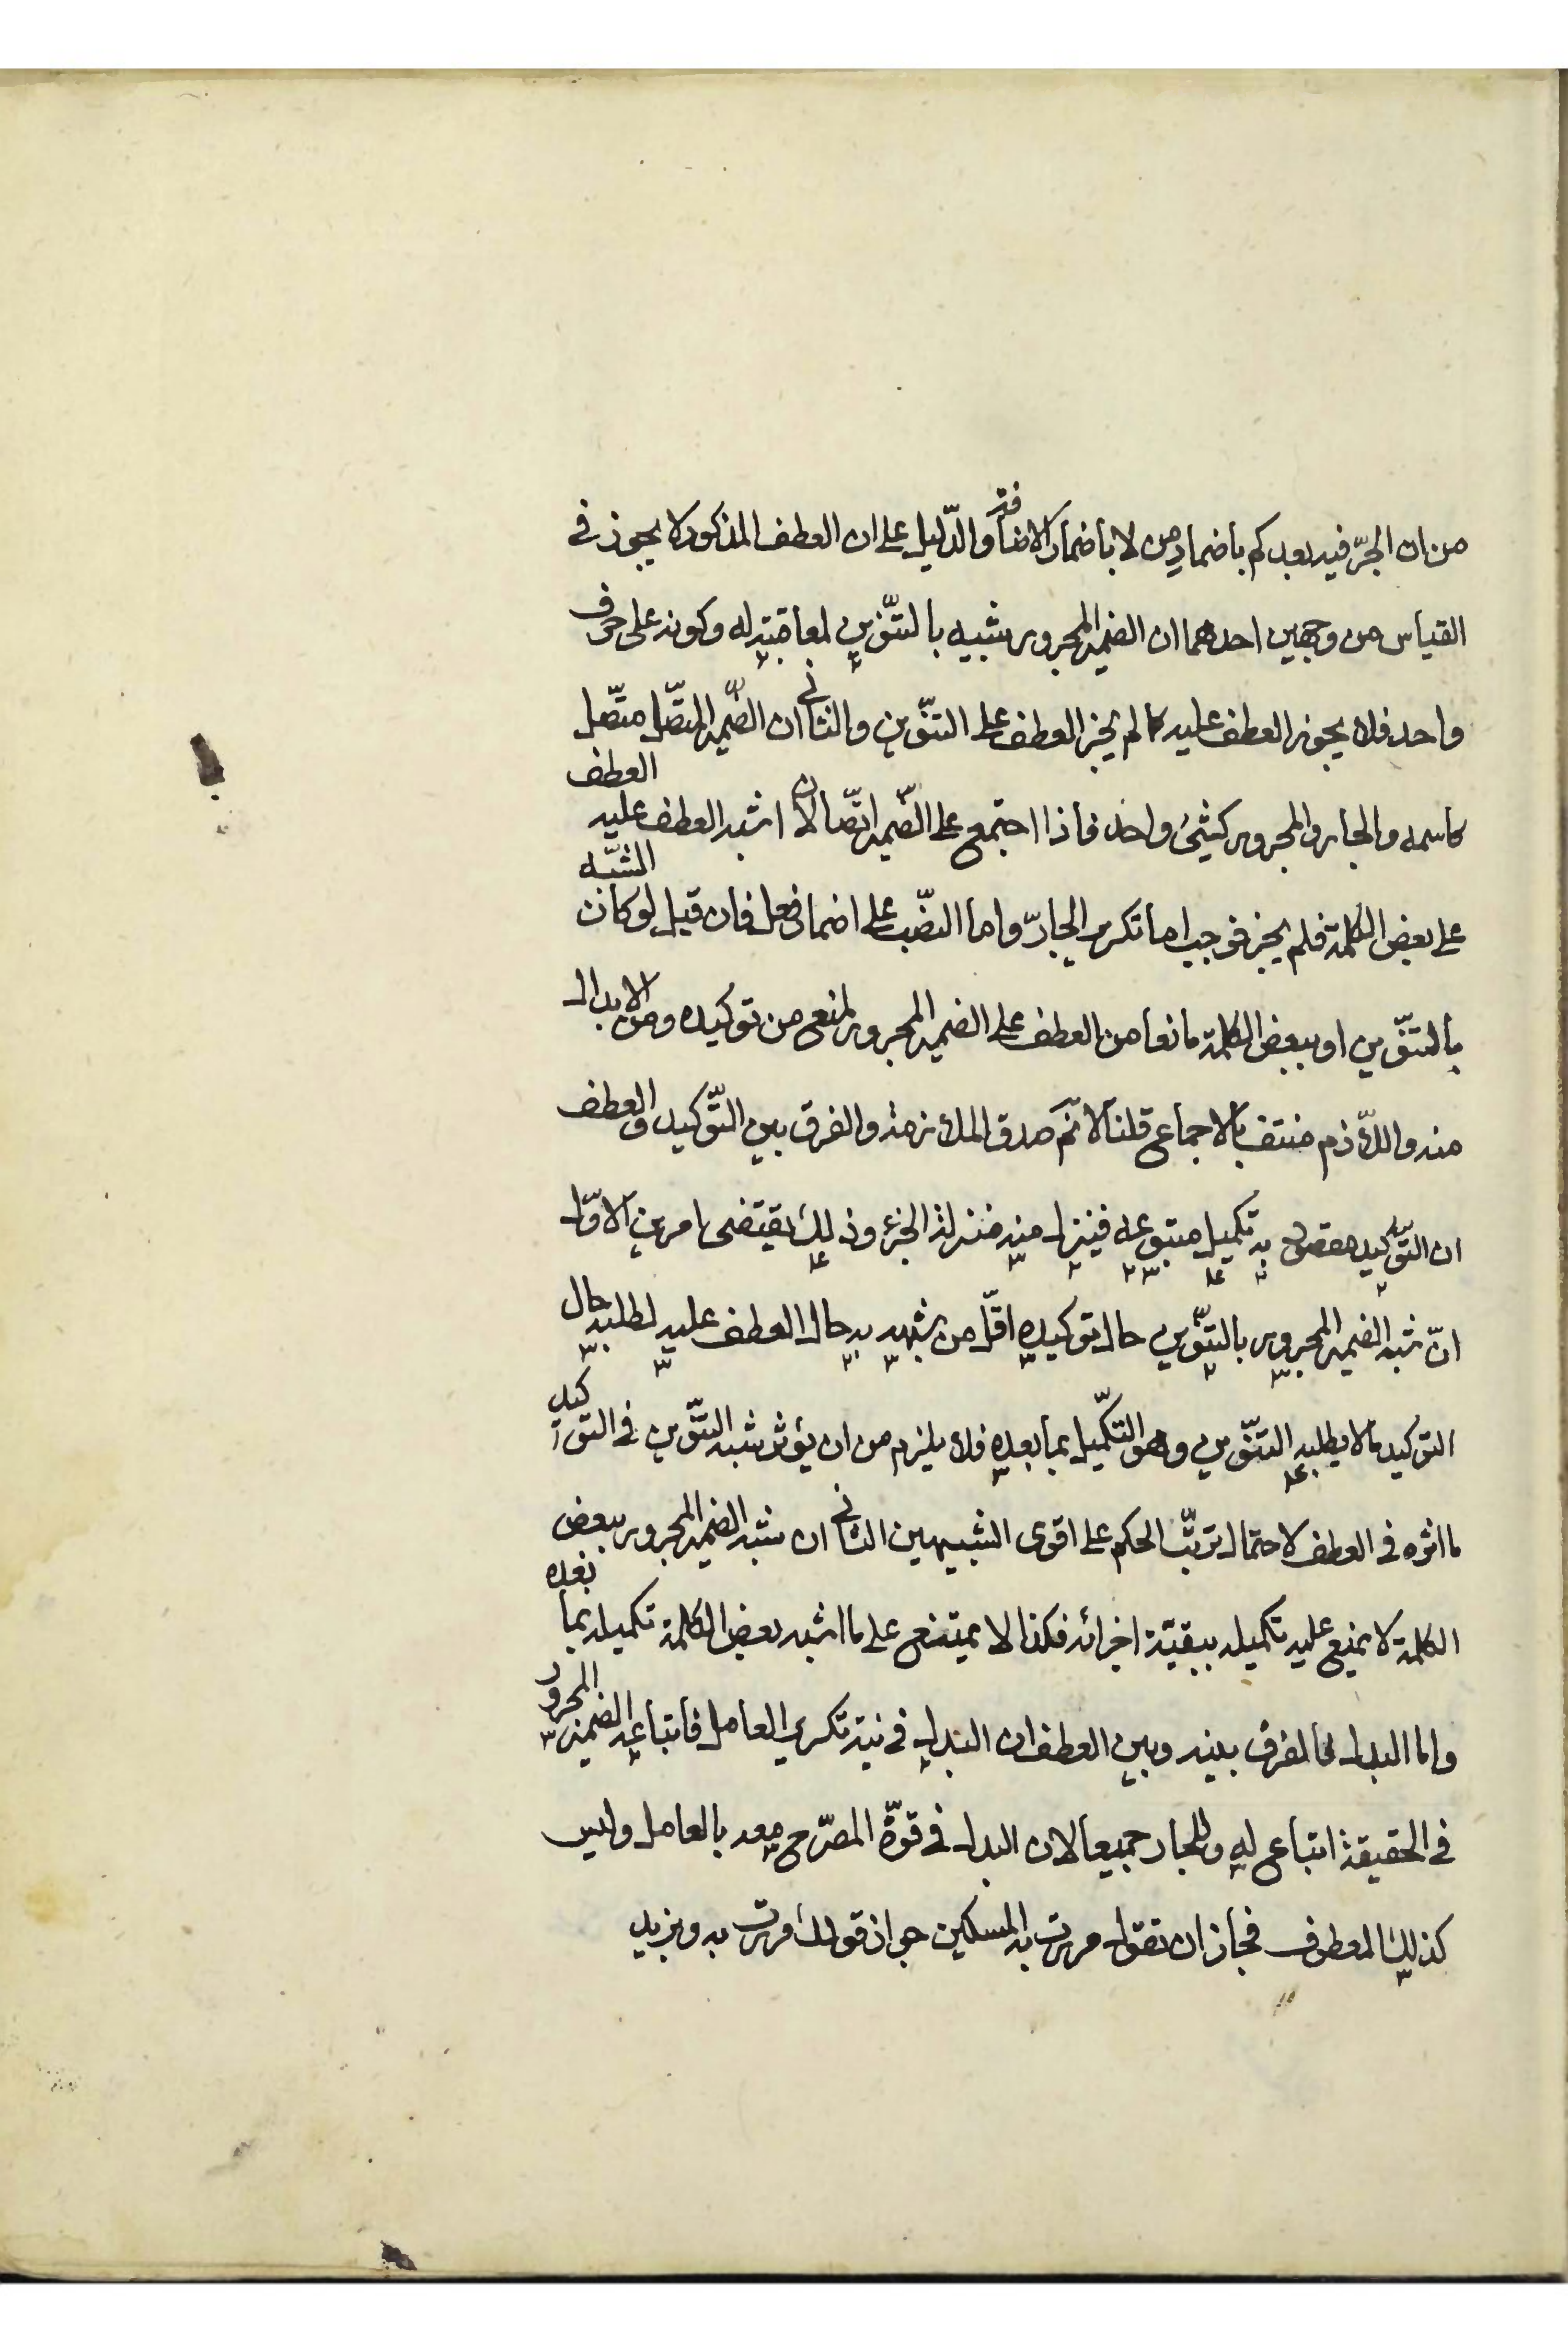 من ان الجرّ فيه بعد كم باضمار من لا باضمار الاضافة والدّليل على ان العطف المذكور لا يجوز فى
القياس من وجهين احدهما ان الضمير المجرور شبيه بالتّنوين لمعاقبته له وكونه على حرف
واحد فلا يجوز العطف عليه كما لم يجز العطف على التنّوين والثانى ان الضّمير المتصّل متصّل
كاسمه والجار والمجرور كشئ واحد فاذا اجتمع على الضّمير اتّصالان اشبه العطف عليه العطف
على بعض الكلمة فلم يجز فوجب اما تكرير الجارّ واما النصّب على اضمار فعل فان قيل لو كان الشّبه
بالتنّوين او ببعض الكلمة مانعا من العطف على الضمير المجرور لمنع من توكيده ومن الابدال
منه واللّازم منتف بالاجماع قلنا لا نمّ صدق الملازمة والفرق بين التّوكيد والعطف
ان التّوكيد مقصود به تكميل متبوعه فينزل منه منزلة الجزء وذلك يقتضى امرين الاوّل
انّ شبه الضمير المجرور بالتنّوين حال توكيده اقلّ من شبهه به حال العطف عليه لطلبه حال
التوكيد ما لا يطلبه التنّوين وهو التكّميل بما بعده فلا يلزم من ان يؤثر شبه التنّوين فى التوكيد
ما اثره فى العطف لاحتمال ترتّب الحكم على اقوى الشبيهين الثانى ان شبه الضمير المجرور ببعض
الكلمة لا يمنع عليه تكميله ببقيّة اجزائه فكذا لا يمتنع على ما اشبه بعض الكلمة تكميله بما بعده
واما البدل فالفرق بينه وبين العطف ان البدل فى نية تكرير العامل فاتباعه الضمير المجرور
فى الحقيقة اتباع له وللجار جميعا لان البدل فى قوّة المصرّح معه بالعامل وليس
كذلك المعطوف فجاز ان تقول مررت به المسكين جواز قولك مررت به وبزيد